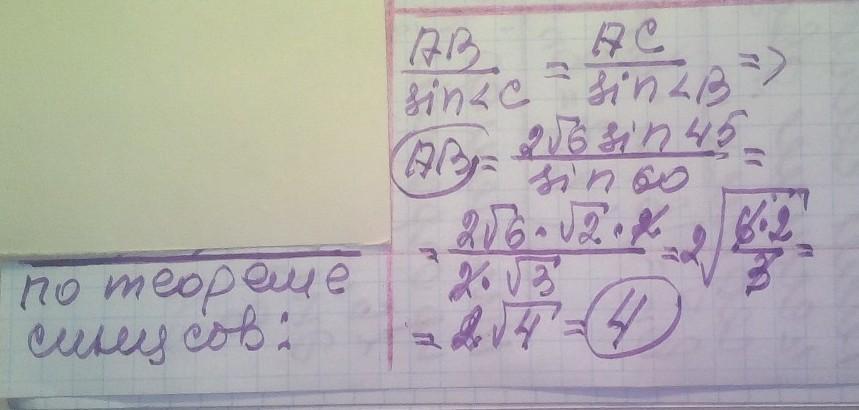 по теореме
синусов:
AB/sin<C = AC/sin<B =>
AB = 2√6 sin 45/sin 60 =
= 2√6·√2·2/2·√3 = 2√6·2/3 =
= 2√4 = 4